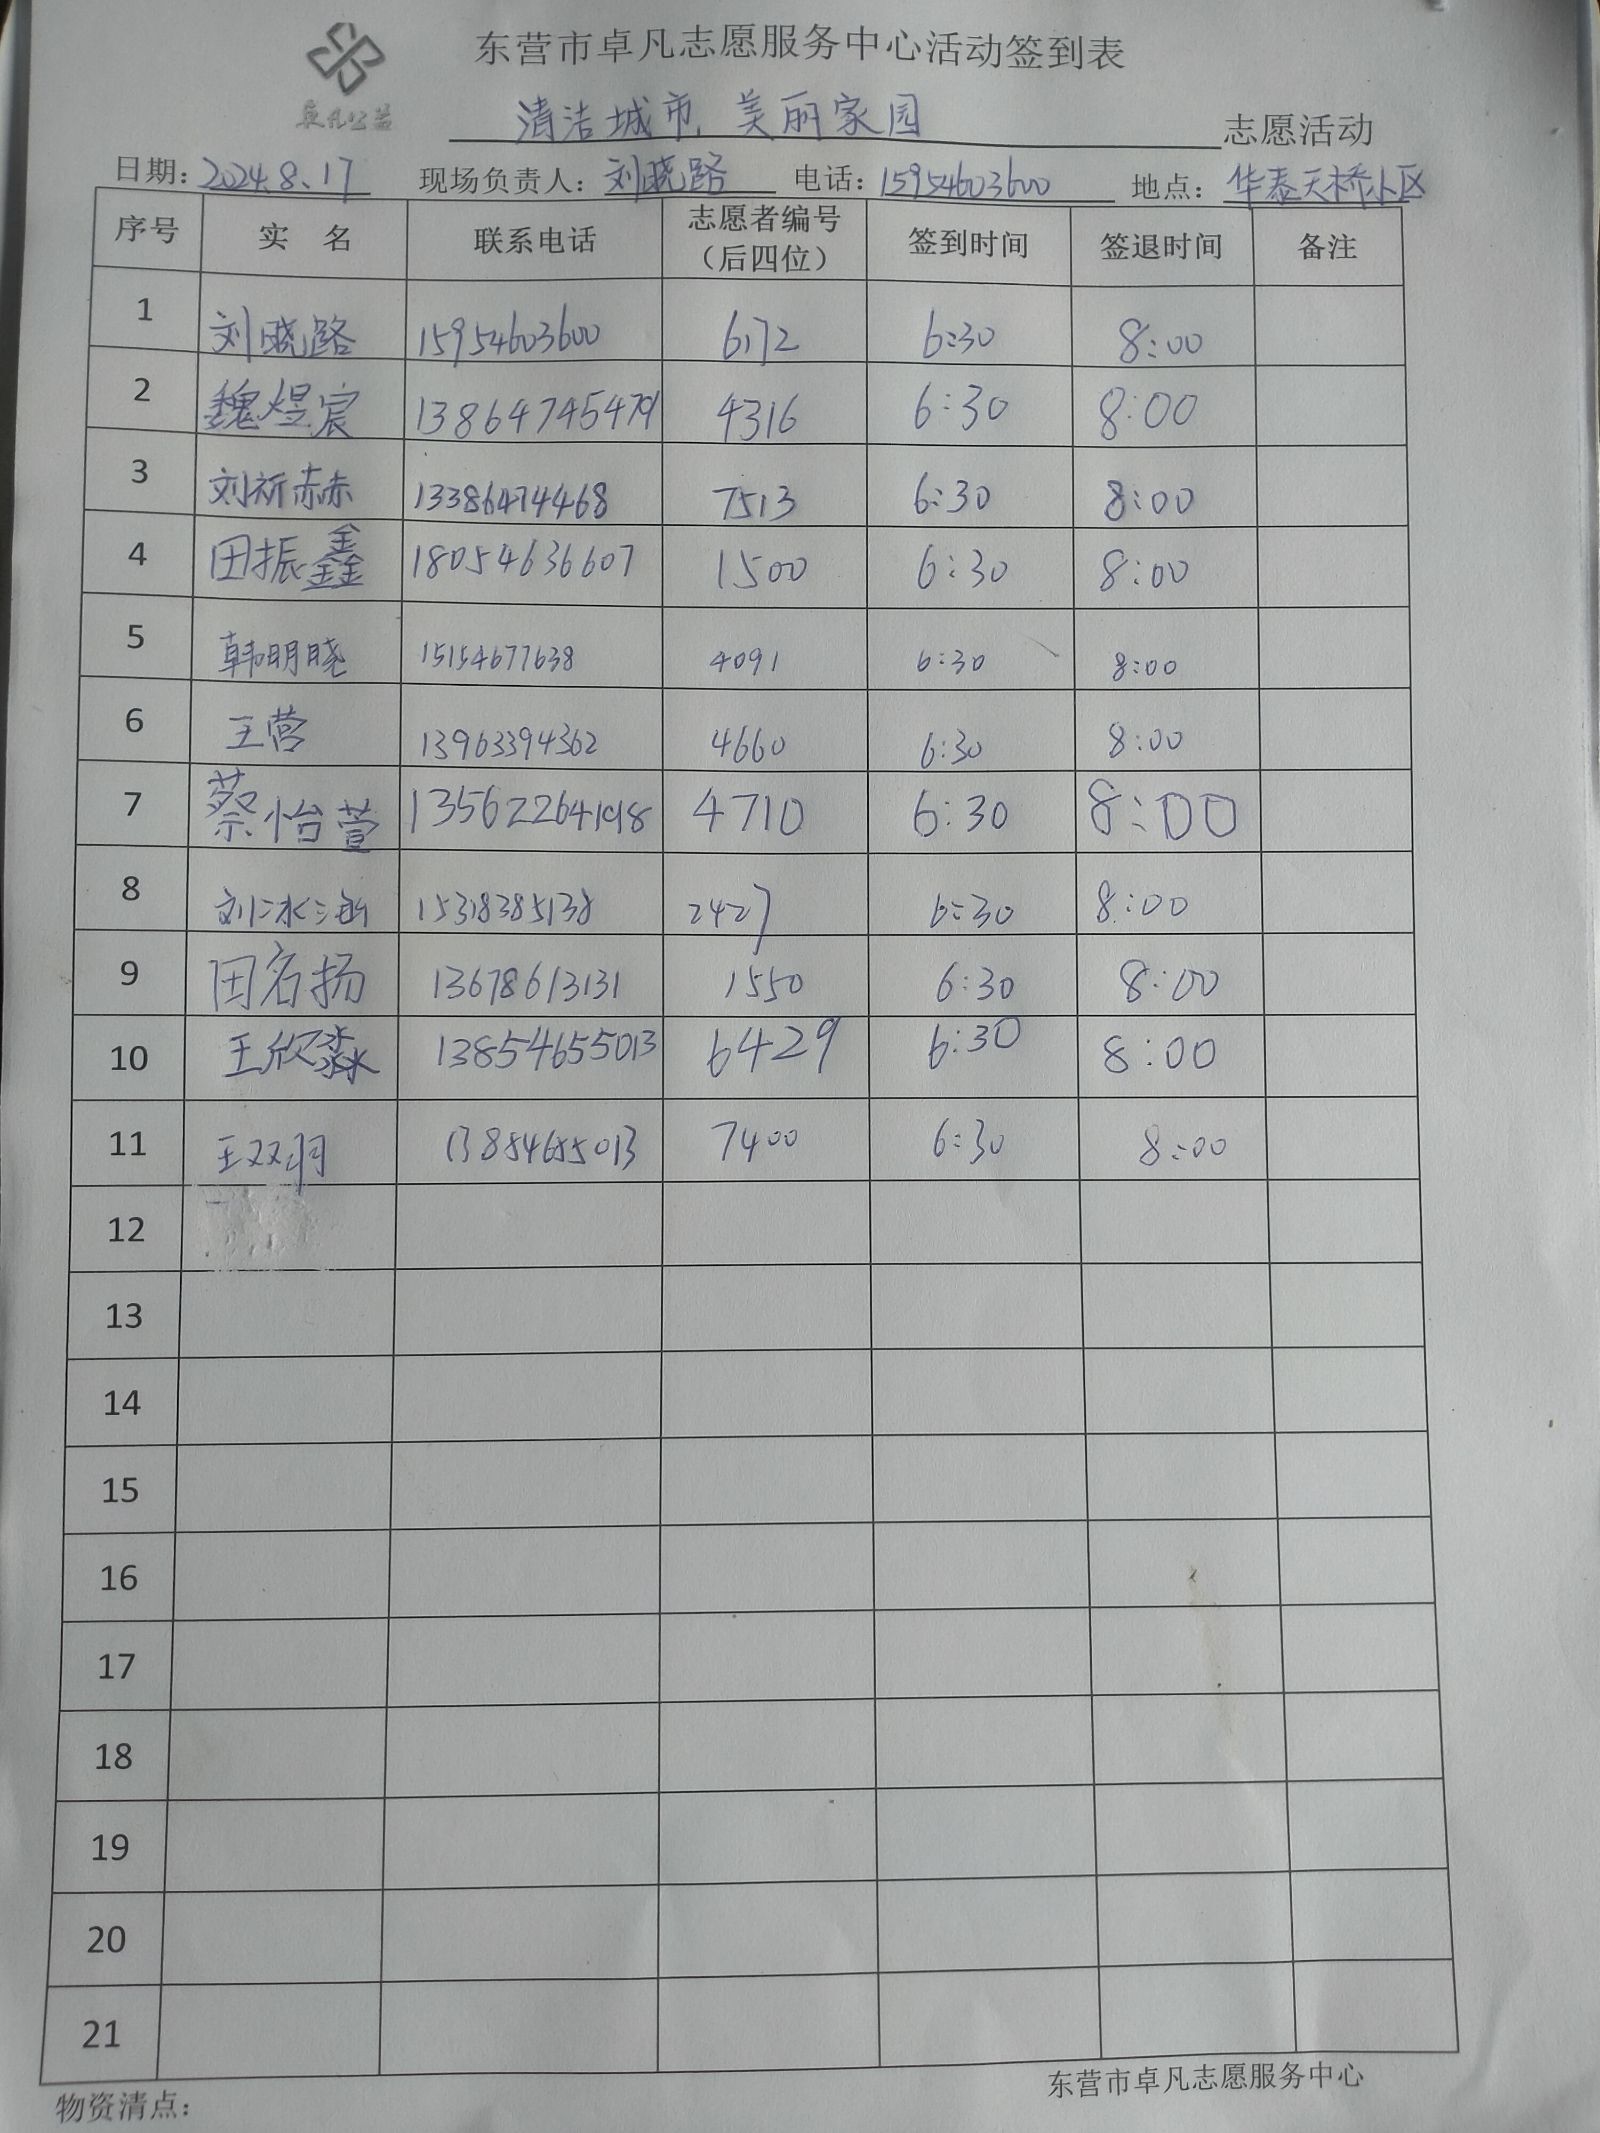 东营市卓凡志愿服务中心活动签到表
卓凡公益
清洁城市,美丽家园 志愿活动
日期：2024.8.17 现场负责人：刘晓路 电话：15954603600 地点：华泰天桥小区
序号 实名 联系电话 志愿者编号（后四位） 签到时间 签退时间 备注
1 刘晓路 15954603600 6172 6:30 8:00
2 魏煜宸 13864745479 4316 6:30 8:00
3 刘祈赫 13386474468 7513 6:30 8:00
4 田振鑫 18054636607 1500 6:30 8:00
5 韩明晓 15154677638 4091 6:30 8:00
6 王营 13963394362 4660 6:30 8:00
7 蔡怡萱 13562264198 4710 6:30 8:00
8 15318385138 2427 6:30 8:00
9 田名扬 13678613131 1550 6:30 8:00
10 王欣淼 13854655013 6429 6:30 8:00
11 王双羽 13854655013 7400 6:30 8:00
12
13
14
15
16
17
18
19
20
21
物资清点： 东营市卓凡志愿服务中心